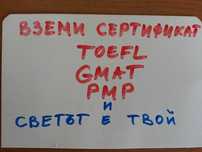 ВЗЕМИ СЕРТИФИКАТ
TOEFL
GMAT
PMP
И
СВЕТЪТ Е ТВОЙ